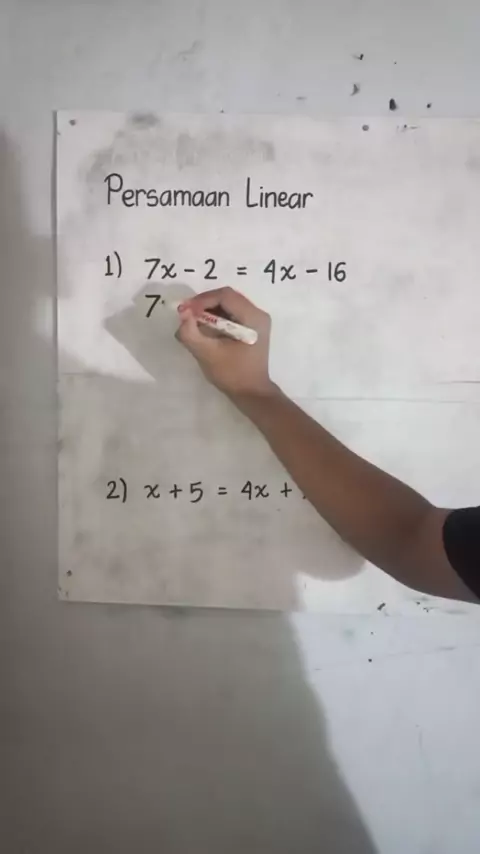 Persamaan Linear
1) 7x - 2 = 4x - 16
7
2) x + 5 = 4x +